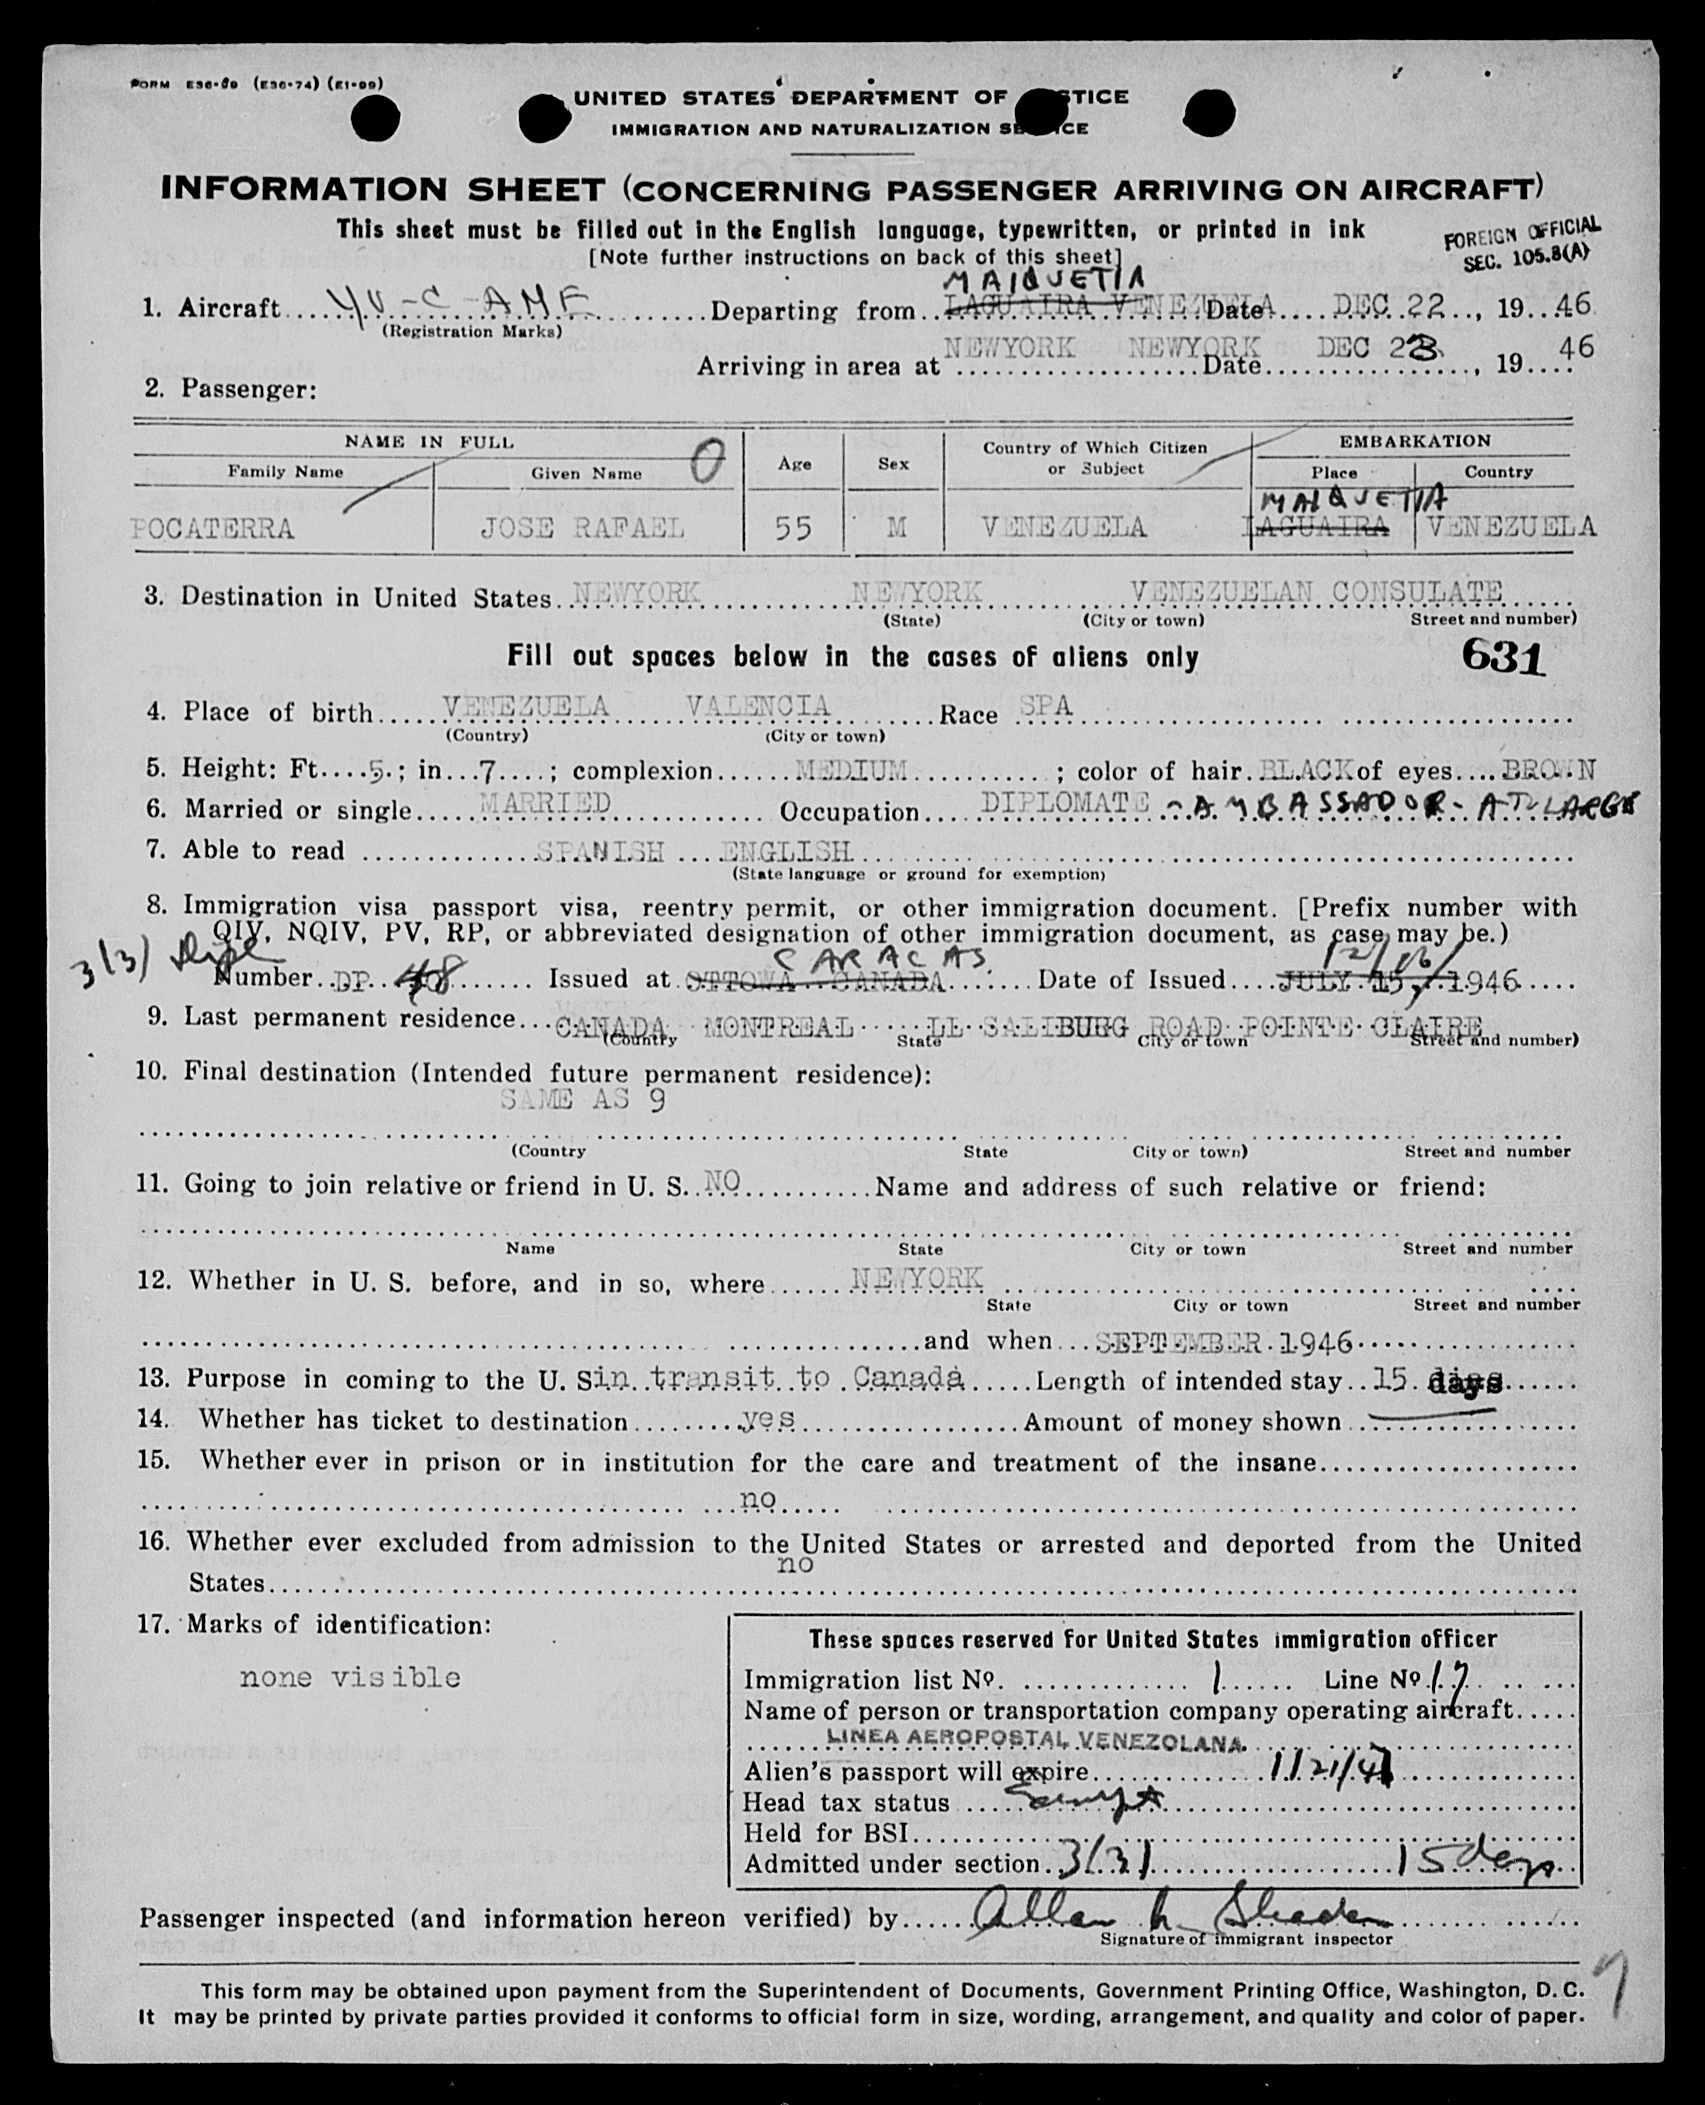 FORM E36-89 (E36-74) (E1-99)
UNITED STATES DEPARTMENT OF TICE
IMMIGRATION AND NATURALIZATION SE ICE
INFORMATION SHEET (CONCERNING PASSENGER ARRIVING ON AIRCRAFT)
This sheet must be filled out in the English language, typewritten, or printed in ink
[Note further instructions on back of this sheet]
FOREIGN OFFICIAL
SEC. 105.3(A)
MAIQUETIA
1. Aircraft.....YV-C-AME..........Departing from..LAGUAIRA VENEZUELA Date.....DEC 22..., 19...46
(Registration Marks)
Arriving in area at NEWYORK NEWYORK Date DEC 23, 19....46
2. Passenger:
NAME IN FULL Age Sex Country of Which Citizen or Subject EMBARKATION
Family Name Given Name Place Country
0
MAIQUETIA
POCATERRA JOSE RAFAEL 55 M VENEZUELA LAGUAIRA VENEZUELA
3. Destination in United States..NEWYORK NEWYORK VENEZUELAN CONSULATE
(State) (City or town) Street and number)
Fill out spaces below in the cases of aliens only 631
4. Place of birth.....VENEZUELA VALENCIA Race SPA
(Country) (City or town)
5. Height: Ft....5.; in...7....; complexion......MEDIUM...........; color of hair..BLACK of eyes....BROWN
6. Married or single.....MARRIED Occupation....DIPLOMATE - AMBASSADOR-AT-LARGE
7. Able to read ..............SPANISH ....ENGLISH
(State language or ground for exemption)
8. Immigration visa passport visa, reentry permit, or other immigration document. [Prefix number with
QIV, NQIV, PV, RP, or abbreviated designation of other immigration document, as case may be.)
3(3) Dipl CARACAS 12/16/
Number..DP..48....... Issued at OTTOWA CANADA....... Date of Issued....JULY 15, 1946.....
9. Last permanent residence...CANADA MONTREAL LL SALIBURG ROAD POINTE CLAIRE
(Country State City or town Street and number)
10. Final destination (Intended future permanent residence):
SAME AS 9
(Country State City or town) Street and number
11. Going to join relative or friend in U. S..NO...........Name and address of such relative or friend:
Name State City or town Street and number
12. Whether in U. S. before, and in so, where......NEWYORK
State City or town Street and number
and when...SEPTEMBER 1946
13. Purpose in coming to the U. S in transit to Canada......Length of intended stay..15 days......
14. Whether has ticket to destination.........yes.................Amount of money shown
15. Whether ever in prison or in institution for the care and treatment of the insane
no
16. Whether ever excluded from admission to the United States or arrested and deported from the United
no
States
17. Marks of identification:
none visible
These spaces reserved for United States immigration officer
Immigration list No. 1 Line No 17
Name of person or transportation company operating aircraft.....
LINEA AEROPOSTAL VENEZOLANA.
Alien's passport will expire 1/21/47
Head tax status Exempt
Held for BSI
Admitted under section 3(3) 15 days
Passenger inspected (and information hereon verified) by
Signature of immigrant inspector
This form may be obtained upon payment from the Superintendent of Documents, Government Printing Office, Washington, D. C.
It may be printed by private parties provided it conforms to official form in size, wording, arrangement, and quality and color of paper.